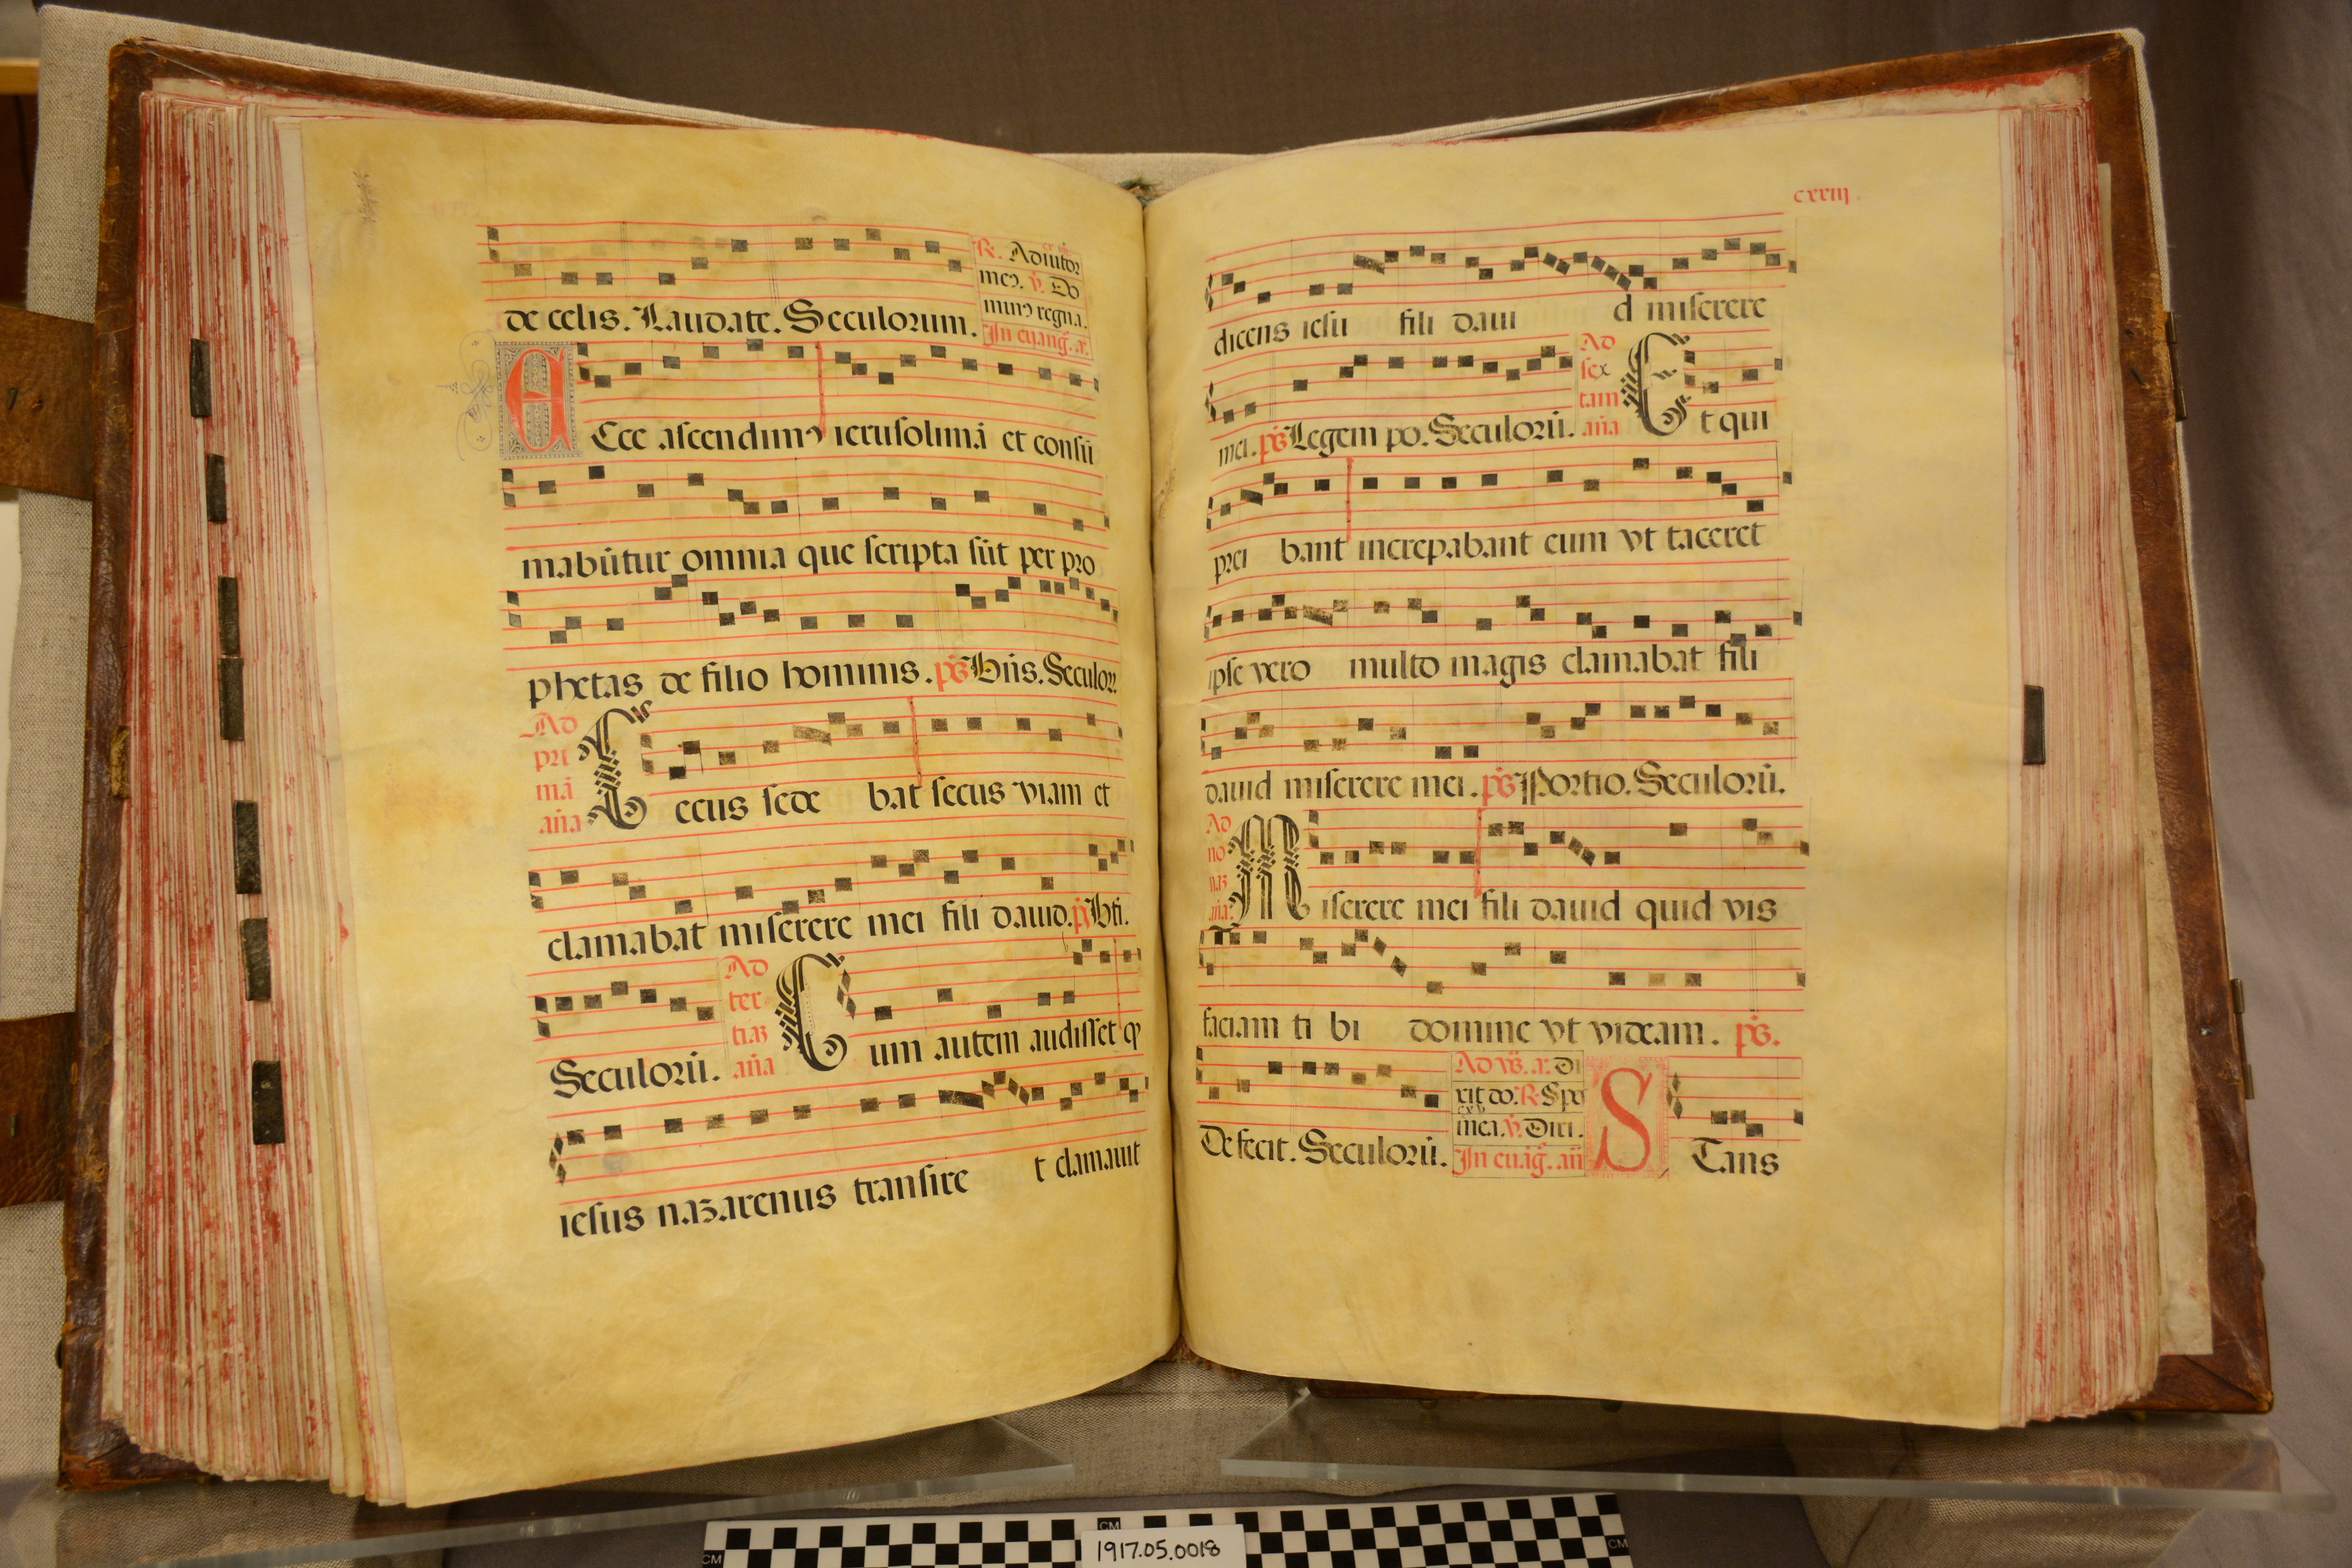 de celis. Laudate. Seculorum.
R. Adiutor
meꝰ. v. Do
minꝰ regna.
In euang. a.
Ecce ascendimꝰ ierusolimā et consū
mabūtur omnia que scripta sūt per pro
phetas de filio hominis. ps Bn̄s. Seculoꝝ.
Ad
pri
mā
an̄a
Cecus sede bat secus viam et
clamabat miserere mei fili dauid. ps Bt̄i.
Seculorū.
Ad
ter
tiaꝫ
an̄a
Cum autem audisset qꝫ
iesus nazarenus transire t clamauit
cxxiij
dicens iesu fili daui d miserere
mei. ps Legem po. Seculorū.
Ad
sex
tam
an̄a
Et qui
prei bant increpabant eum vt taceret
ipse vero multo magis clamabat fili
dauid miserere mei. ps Portio. Seculorū.
Ad
no
naꝫ
an̄a.
Miserere mei fili dauid quid vis
faciam ti bi domine vt videam. ps.
Defecit. Seculorū.
Ad vs̄. a. di
xit do. R. Spe
mea. v. Diri.
In euāg. an̄
STans
CM
CM
CM
1917.05.0018